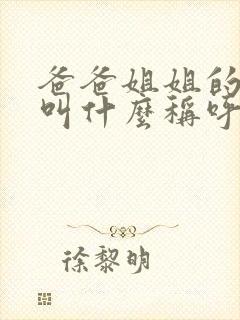 爸爸姐姐的
叫什麼稱呼
徐黎明